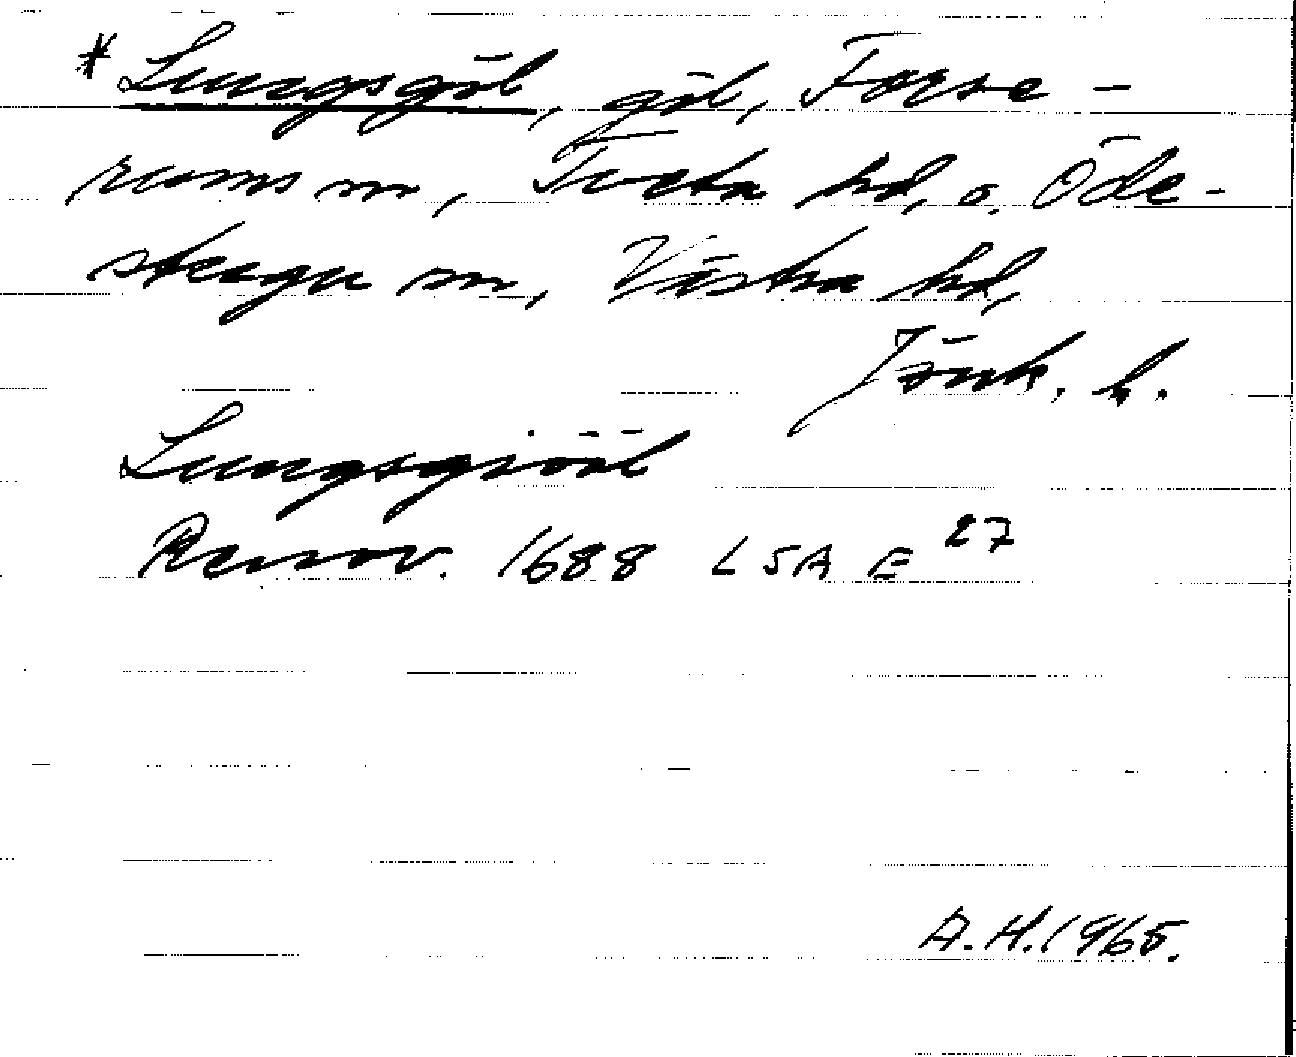 * Lungsgöl, göl, Forse-
rums sn, Tveta hd, o. Öde-
stugu sn, Västra hd,
Jönk. l.
Lungsgiööl
Renov. 1688 LSA E 27
A.H. 1965.